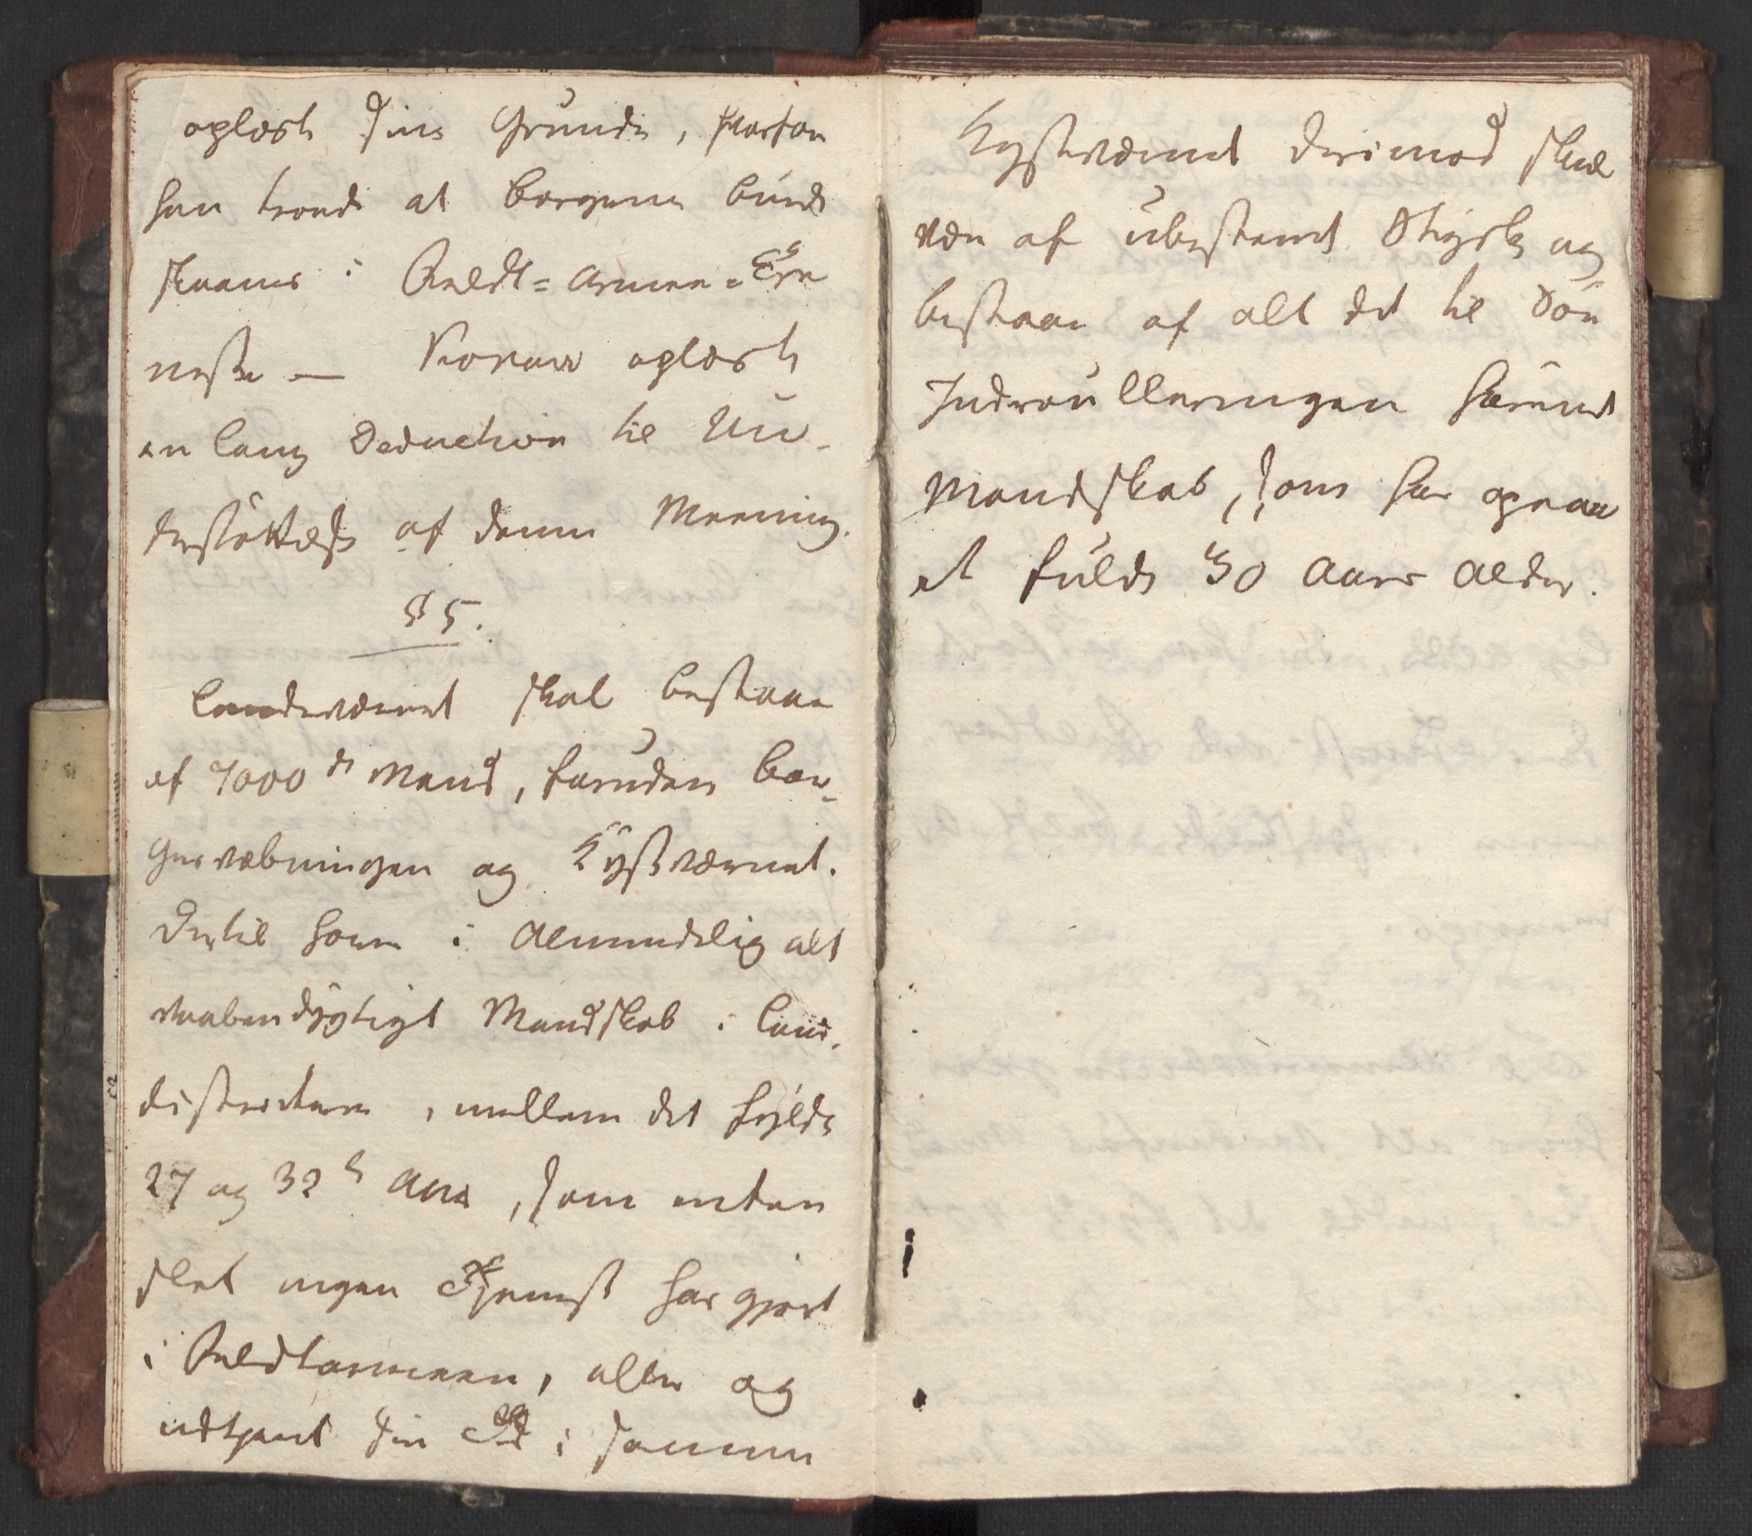 oplæste sine Grunde, hvorfor
han troede at Borgerne burde
staaes i Feldt=Armee=Tje
neste — oplæste
en lang Deduction til Un-
derstøttelse af denne Meening.
§ 5.
Landeværnet skal bestaae
af 7000de Mand, foruden Bor-
gervæbningen og Kÿstværnet.
Dertil hører i Almindelig alt
vaabendygtigt Mandskab i Land-
districterne, mellem det fyldte
27 og 32te Aar, som enten
slet ingen Tjeneste har gjort
i Feldtarmeen, eller og
udtjent sin Tid i samme
Kystværnet derimod skal
være af ubestemt Styrke og
bestaae af alt det til Søe
Indroulleringen hørende
Mandskab, som har opnaa
et fulde 30 Aars Alder.